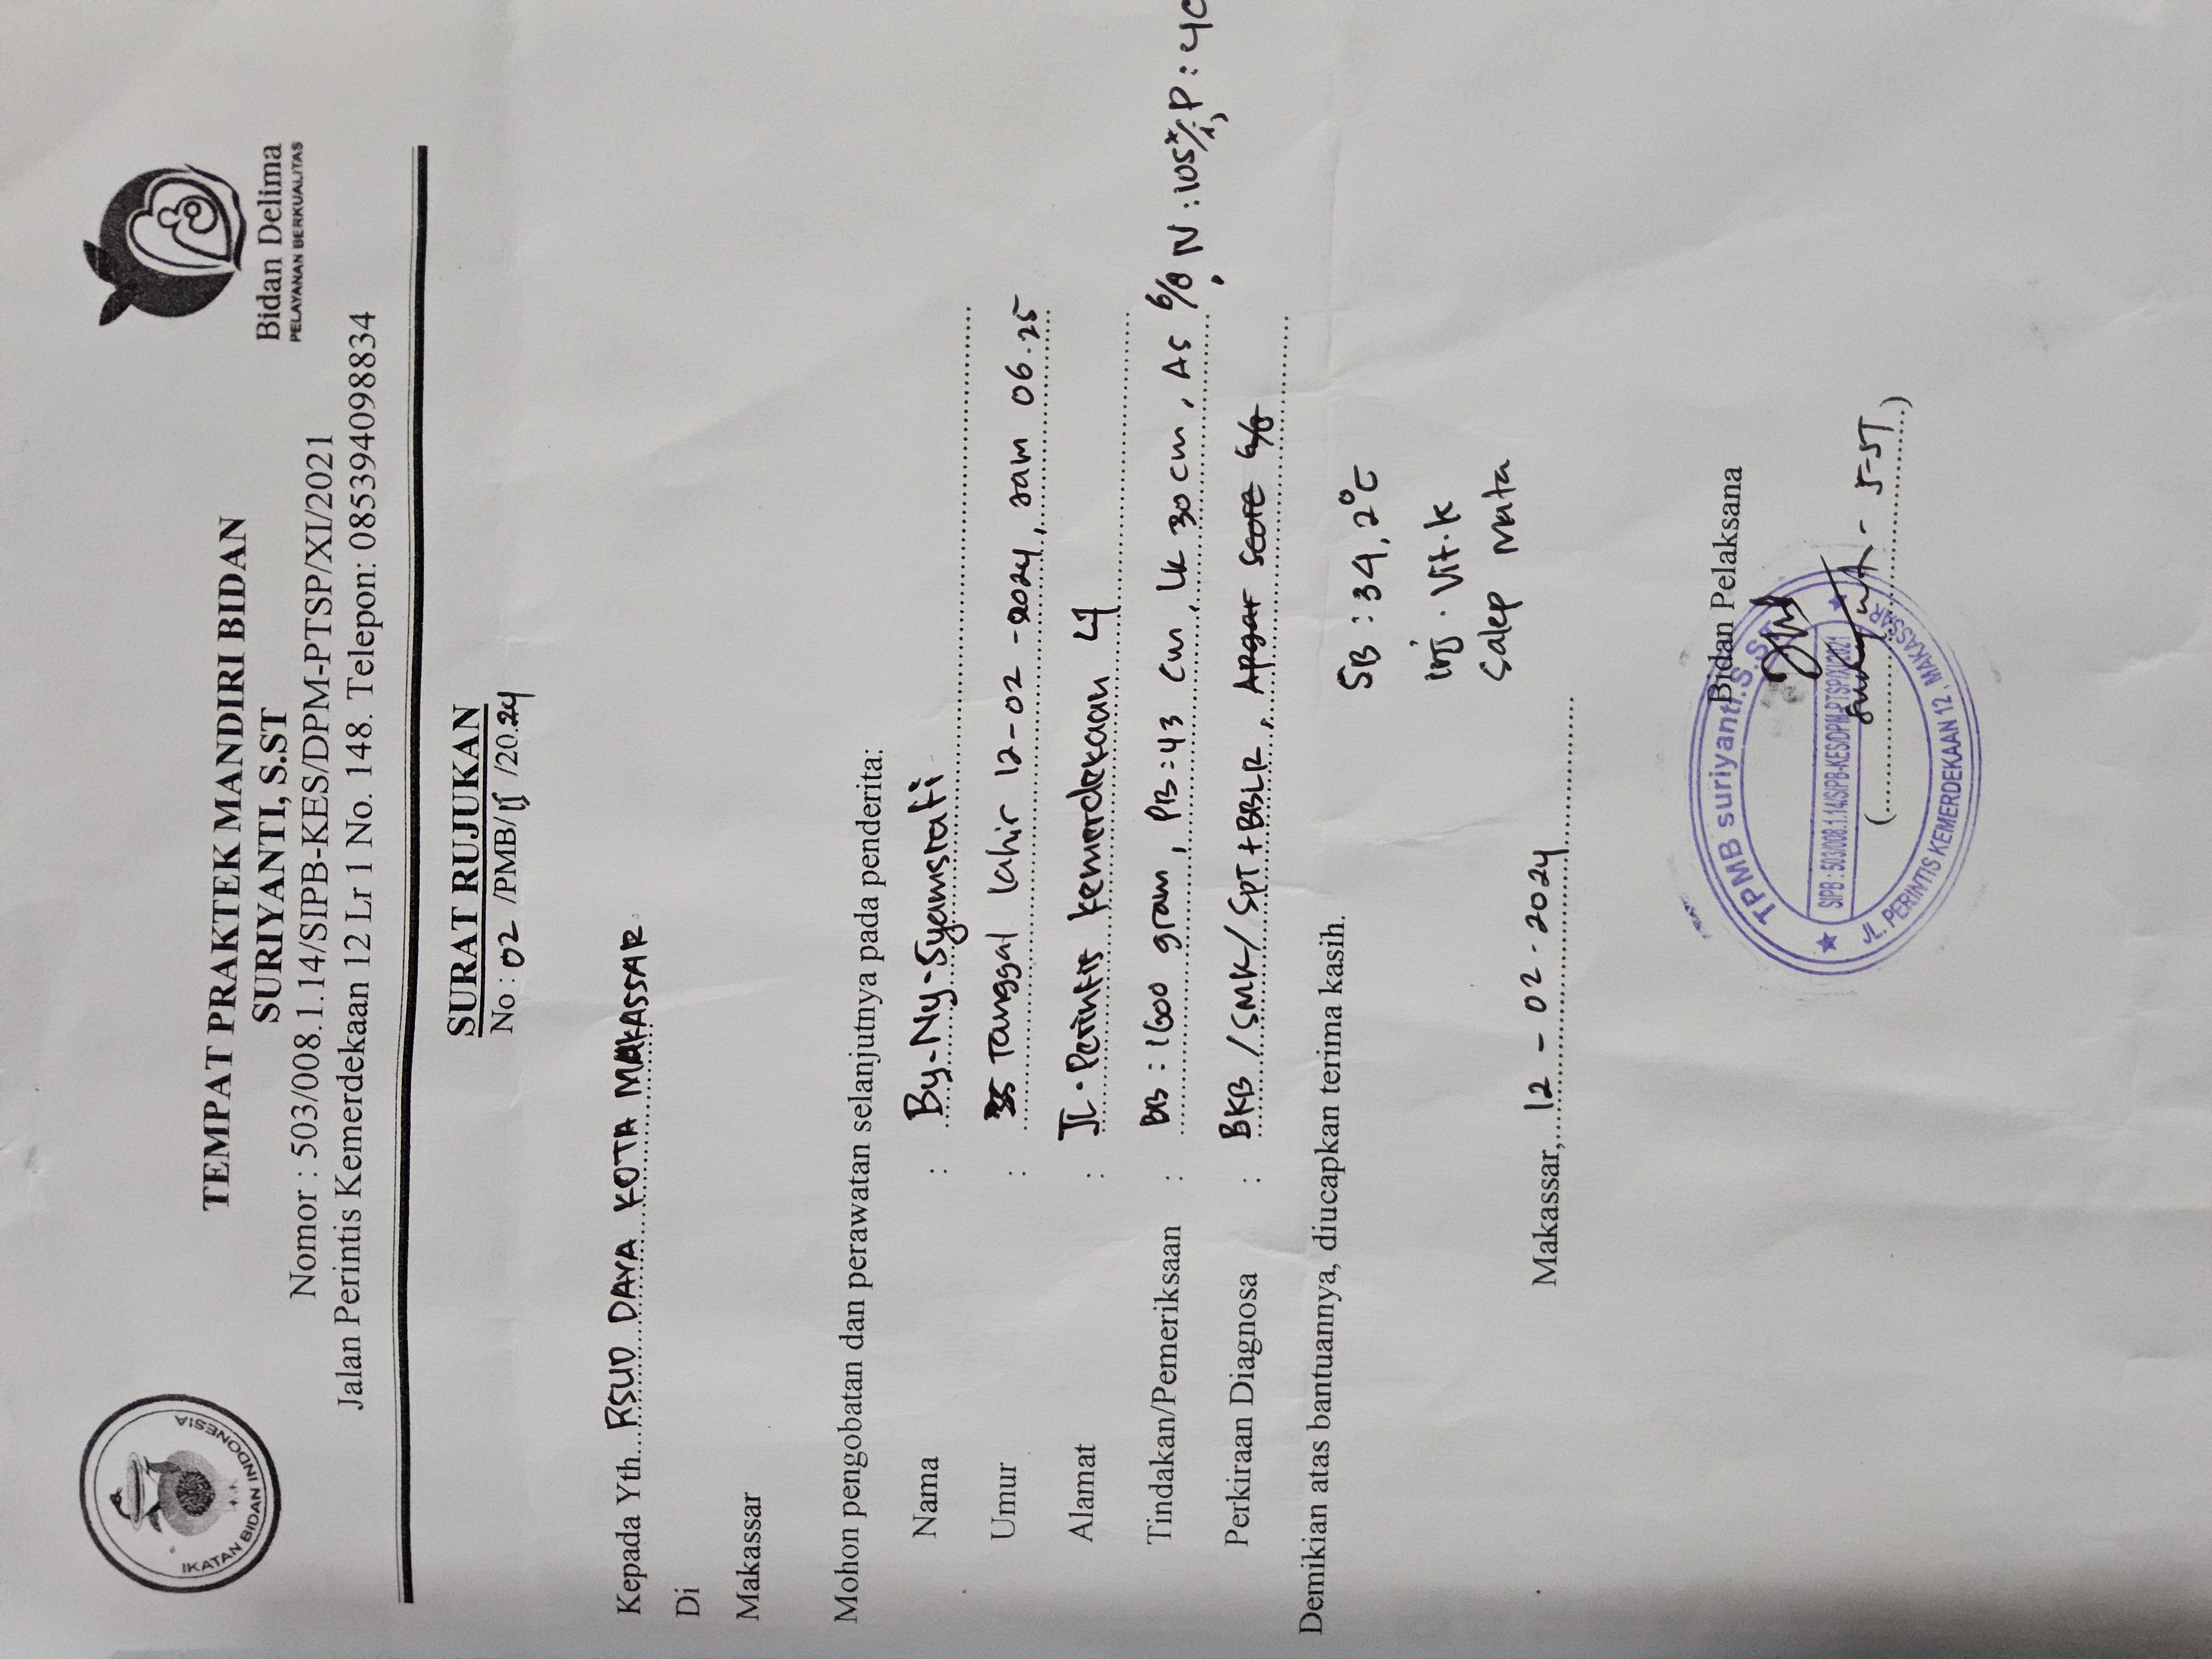 IKATAN BIDAN INDONESIA
TEMPAT PRAKTEK MANDIRI BIDAN
SURIYANTI, S.ST
Nomor : 503/008.1.14/SIPB-KES/DPM-PTSP/XI/2021
Jalan Perintis Kemerdekaan 12 Lr 1 No. 148. Telepon: 085394098834
Bidan Delima
PELAYANAN BERKUALITAS
SURAT RUJUKAN
No : 02 /PMB/II /20.24
Kepada Yth. RSUD DAYA KOTA MAKASSAR
Di
Makassar
Mohon pengobatan dan perawatan selanjutnya pada penderita:
Nama : By-Ny-Syamsrati
Umur : Tanggal lahir 12-02-2024, Jam 06.25
Alamat : JL. Perintis kemerdekaan 4
Tindakan/Pemeriksaan : BB : 1600 gram, PB = 43 cm, LK 30 cm, AS 6/8, N : 105 x/i, P : 40
Perkiraan Diagnosa : BKB / SMK / SPT + BBLR, Apgar Score 6/8
Demikian atas bantuannya, diucapkan terima kasih.
SB : 34,2°C
Inj. Vit.k
Salep Mata
Makassar, 12 - 02 - 2024
Bidan Pelaksana
TPMB suriyanti.S.ST
SIPB : 503/008.1.14/SIPB-KES/DPM-PTSP/XI/2021
JL. PERINTIS KEMERDEKAAN 12, MAKASSAR